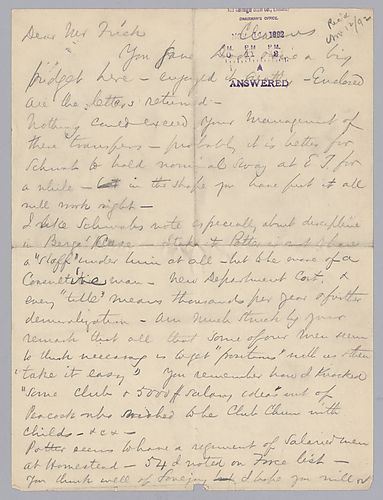 CHAIRMAN'S OFFICE.
1892
A.M. P.M.
ANSWERED
Rec'd
Nov 12/92
Dear Mr Frick
You gave a big
budget here — enjoyed — Enclosed
are the letters returned —
Nothing could exceed your management of
these transfers — probably it is better for
Schwab to hold nominal sway at E T for
a while — but in the shape you have put it all
will work right —
I like Schwab's note especially about discipline
in Case — Potter must have
a "Staff" under him at all — but be more of a
man — New Department Cost &
every "title" means thousands per year & further
demoralization — Am much struck by your
remark that all that some of our men seem
to think necessary is to get "positions" with us & then
"take it easy" You remember how I knocked
"Some club & 5000$ Salary idea" out of
Peacock who wished to be Club Chum with
Childs — &c & —
Potter seems to have a regiment of salaried men
at Homestead — 54 I noted on Force list —
You think well of Lovejoy & I hope you will